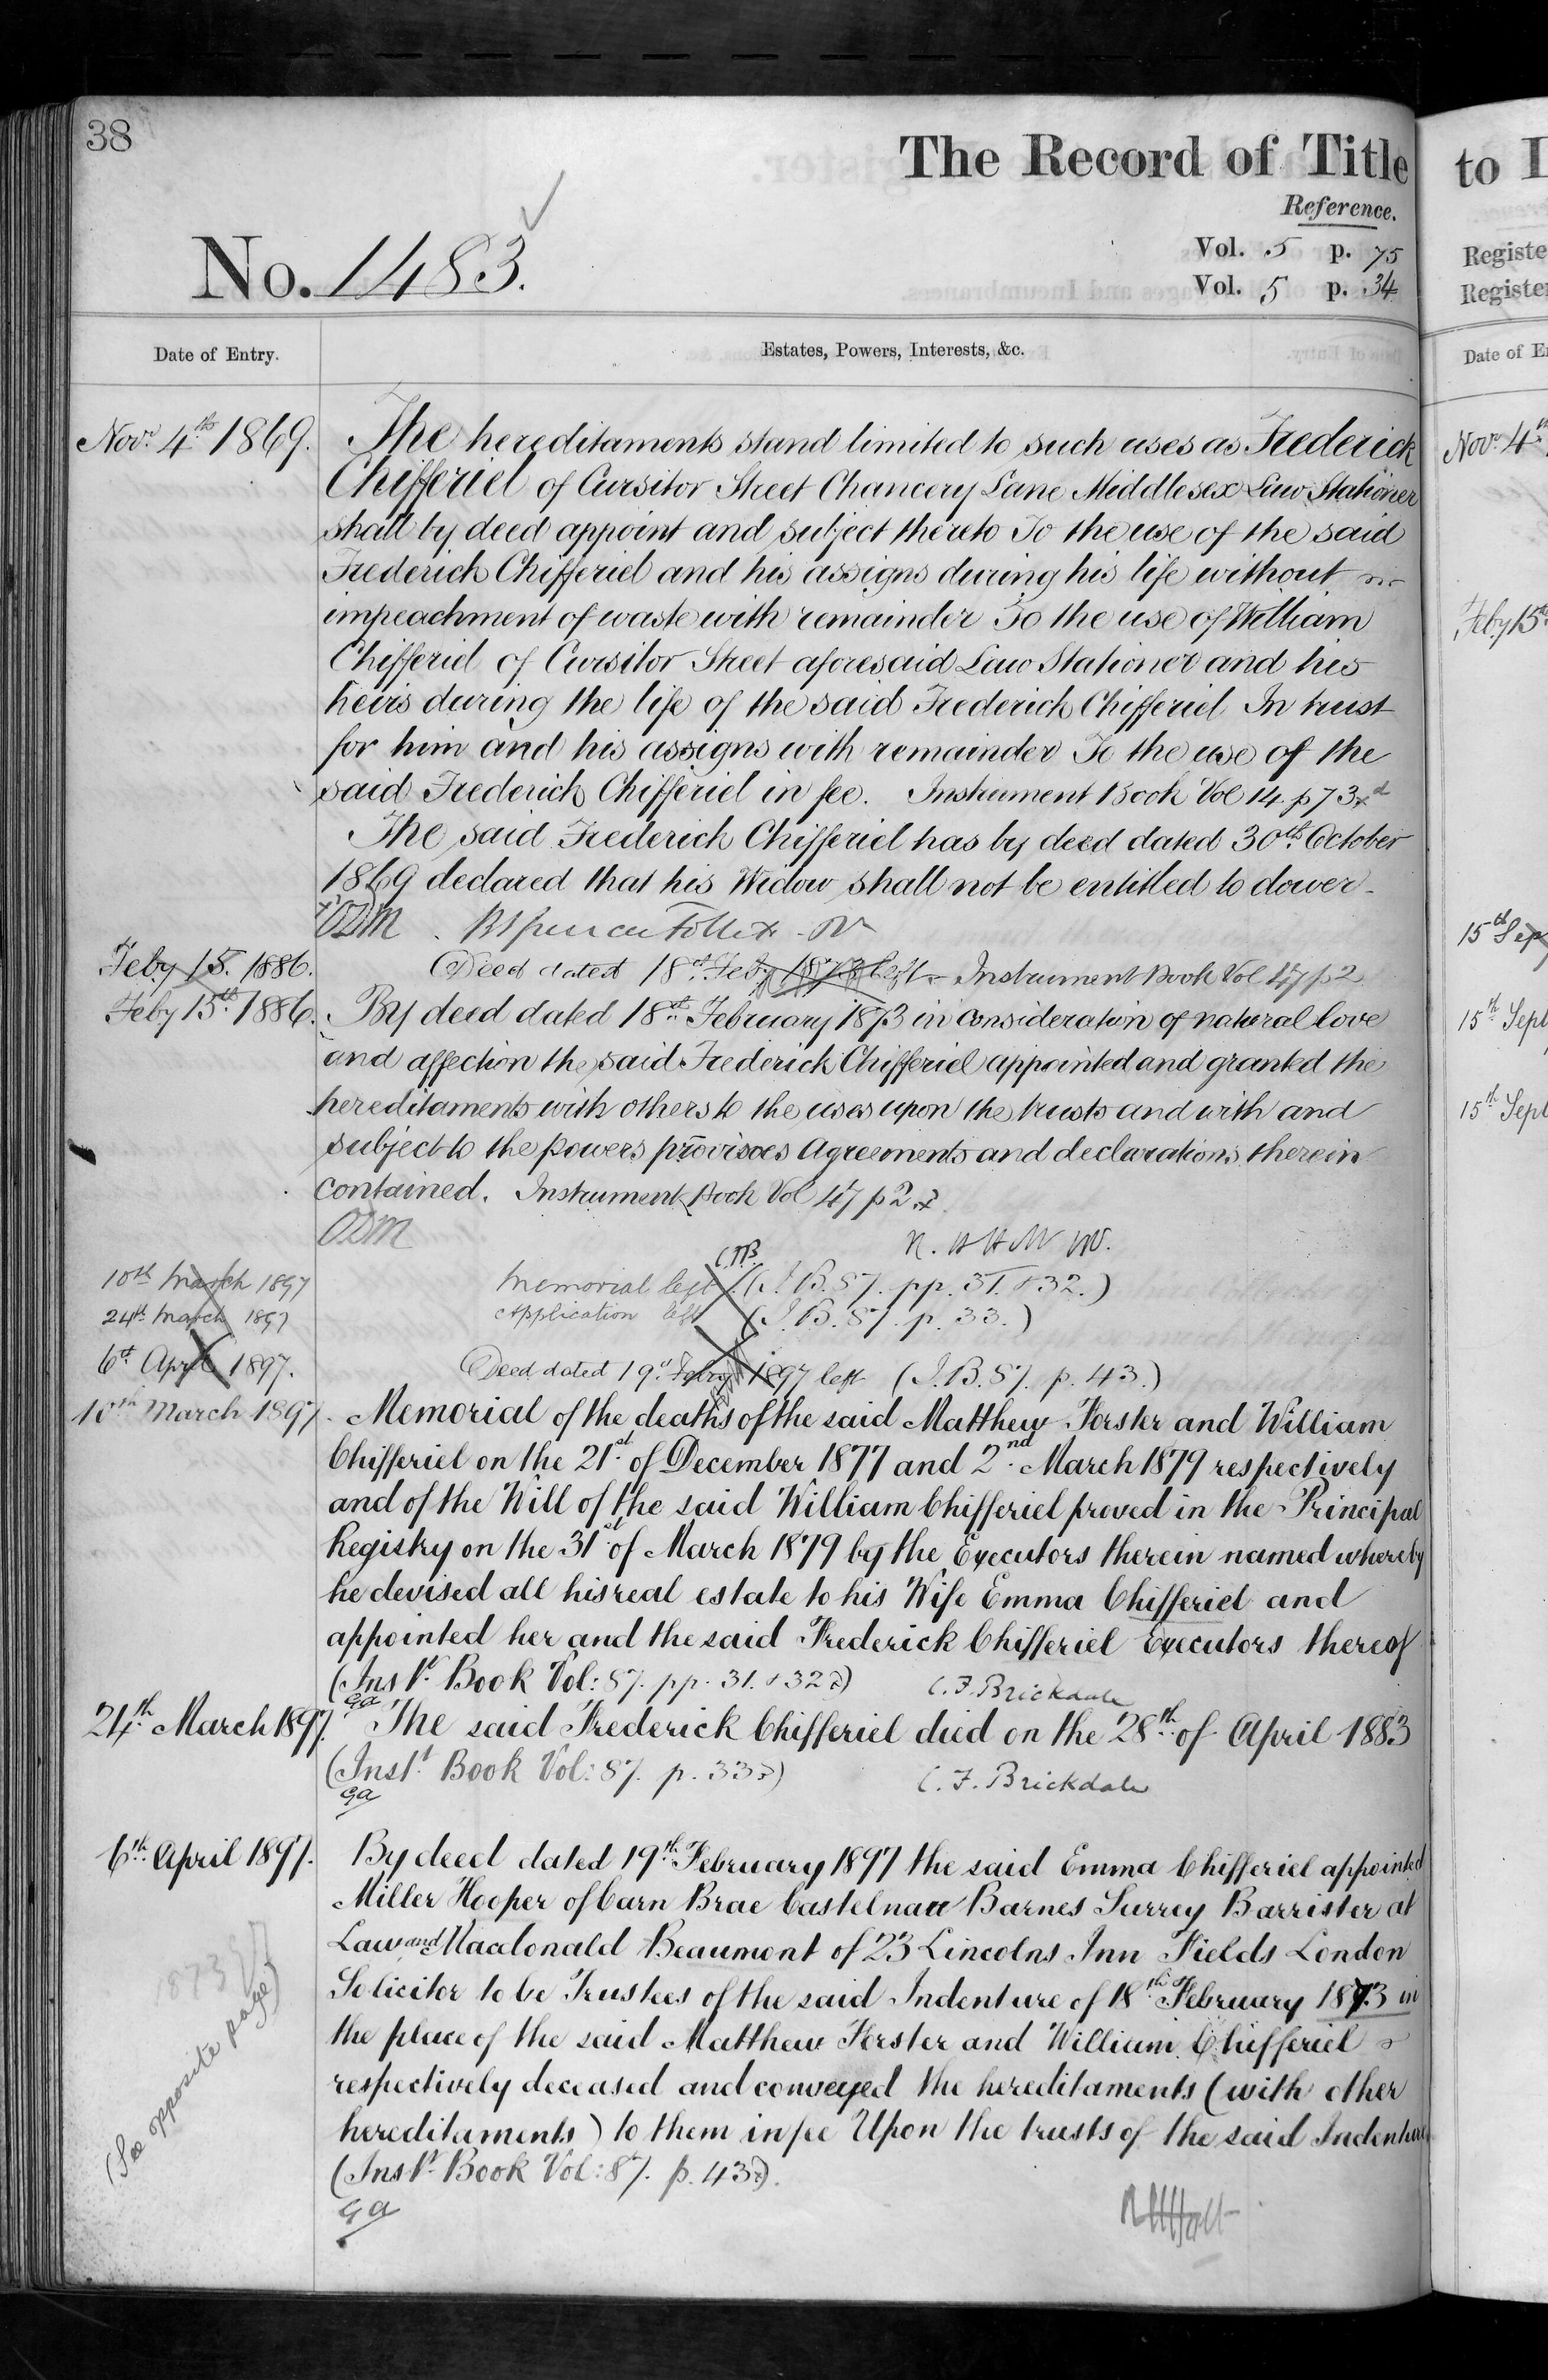 38
The Record of Title
Reference.
Vol. 5 p. 75
No. 1483.
Vol. 5 p. 34
Date of Entry.
Estates, Powers, Interests, &c.
Novr 4th 1869. The hereditaments stand limited to such uses as Frederick
Chifferiel of Cursitor Street Chancery Lane Middlesex Law Stationer
shall by deed appoint and subject thereto To the use of the said
Frederick Chifferiel and his assigns during his life without
impeachment of waste with remainder To the use of William
Chifferiel of Cursitor Street aforesaid Law Stationer and his
heirs during the life of the said Frederick Chifferiel In trust
for him and his assigns with remainder To the use of the
said Frederick Chifferiel in fee. Instrument Book Vol 14 p 73
The said Frederick Chifferiel has by deed dated 30th October
1869 declared that his Widow shall not be entitled to dower
ODM
Feby 15. 1886. Deed dated 18th Feby 1873 left Instrument Book Vol 47 p 2
Feby 15th 1886. By deed dated 18th February 1873 in consideration of natural love
and affection the said Frederick Chifferiel appointed and granted the
hereditaments with others to the uses upon the trusts and with and
subject to the powers provisoes Agreements and declarations therein
contained. Instrument Book Vol 47 p 2
ODM
10th March 1897 Memorial left (I.B. 87. pp. 31. & 32.)
24th March 1897 Application left (I.B. 87. p. 33.)
6th April 1897. Deed dated 19th Feby 1897 left (I.B. 87. p. 43.)
10th March 1897. Memorial of the deaths of the said Matthew Forster and William
Chifferiel on the 21st of December 1877 and 2nd March 1879 respectively
and of the Will of the said William Chifferiel proved in the Principal
Registry on the 31st of March 1879 by the Executors therein named whereby
he devised all his real estate to his Wife Emma Chifferiel and
appointed her and the said Frederick Chifferiel Executors thereof
(Inst. Book Vol: 87. pp. 31. & 32) C. F. Brickdale
GA
24th March 1897. The said Frederick Chifferiel died on the 28th of April 1883
(Inst. Book Vol: 87. p. 33) C. F. Brickdale
GA
6th April 1897. By deed dated 19th February 1897 the said Emma Chifferiel appointed
Miller Hooper of Carn Brae Castelnau Barnes Surrey Barrister at
Law and Macdonald Beaumont of 23 Lincolns Inn Fields London
Solicitor to be Trustees of the said Indenture of 18th February 1873 in
the place of the said Matthew Forster and William Chifferiel
respectively deceased and conveyed the hereditaments (with other
hereditaments) to them in fee Upon the trusts of the said Indenture
(Inst. Book Vol: 87. p. 43).
GA
(See opposite page)
1873
to
Registe
Register
Date of E
Novr 4th
Feby 15th
15th Sep
15th Sept
15th Sept